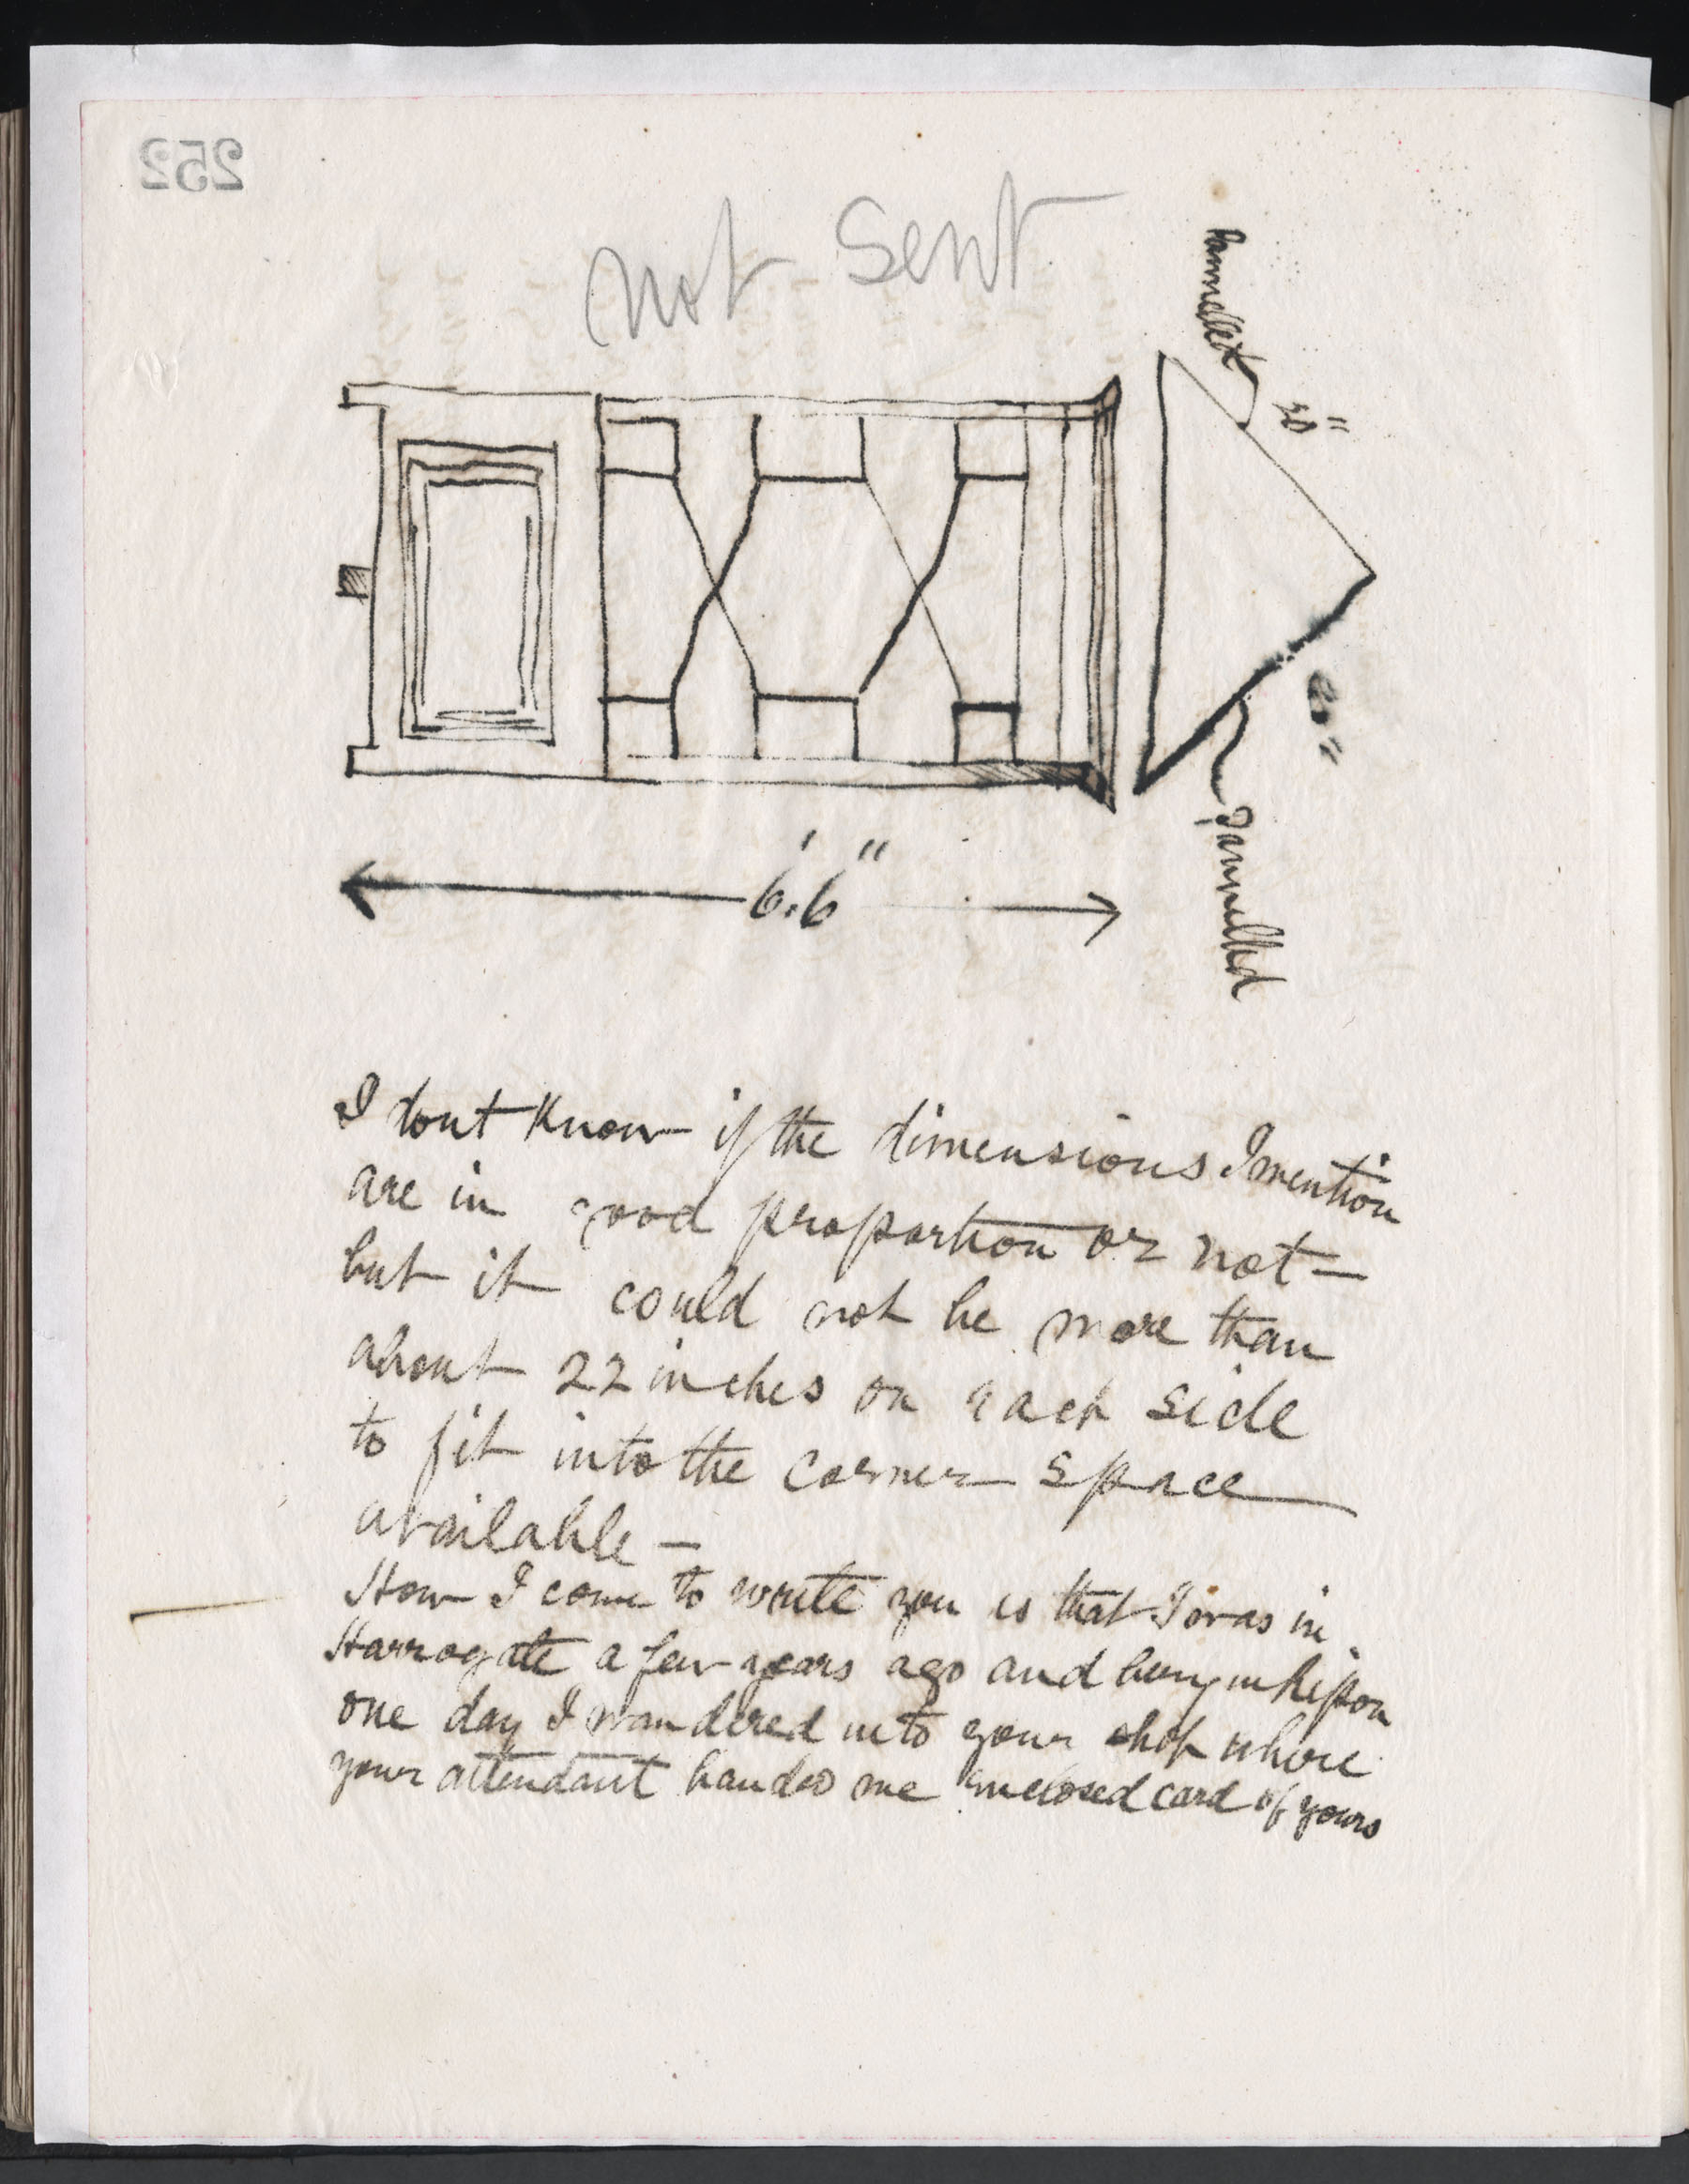 252
not sent
Pannelled
20"
20"
Pannelled
6'.6"
I dont Know if the dimensions I mention
are in good proportion or not —
but it could not be more than
about 22 inches on each side
to fit into the corner space
available —
How I come to write you is that I was in
Harrogate a few years ago and being in Ripon
one day I wandered into your shop where
your attendant handed me enclosed card of yours